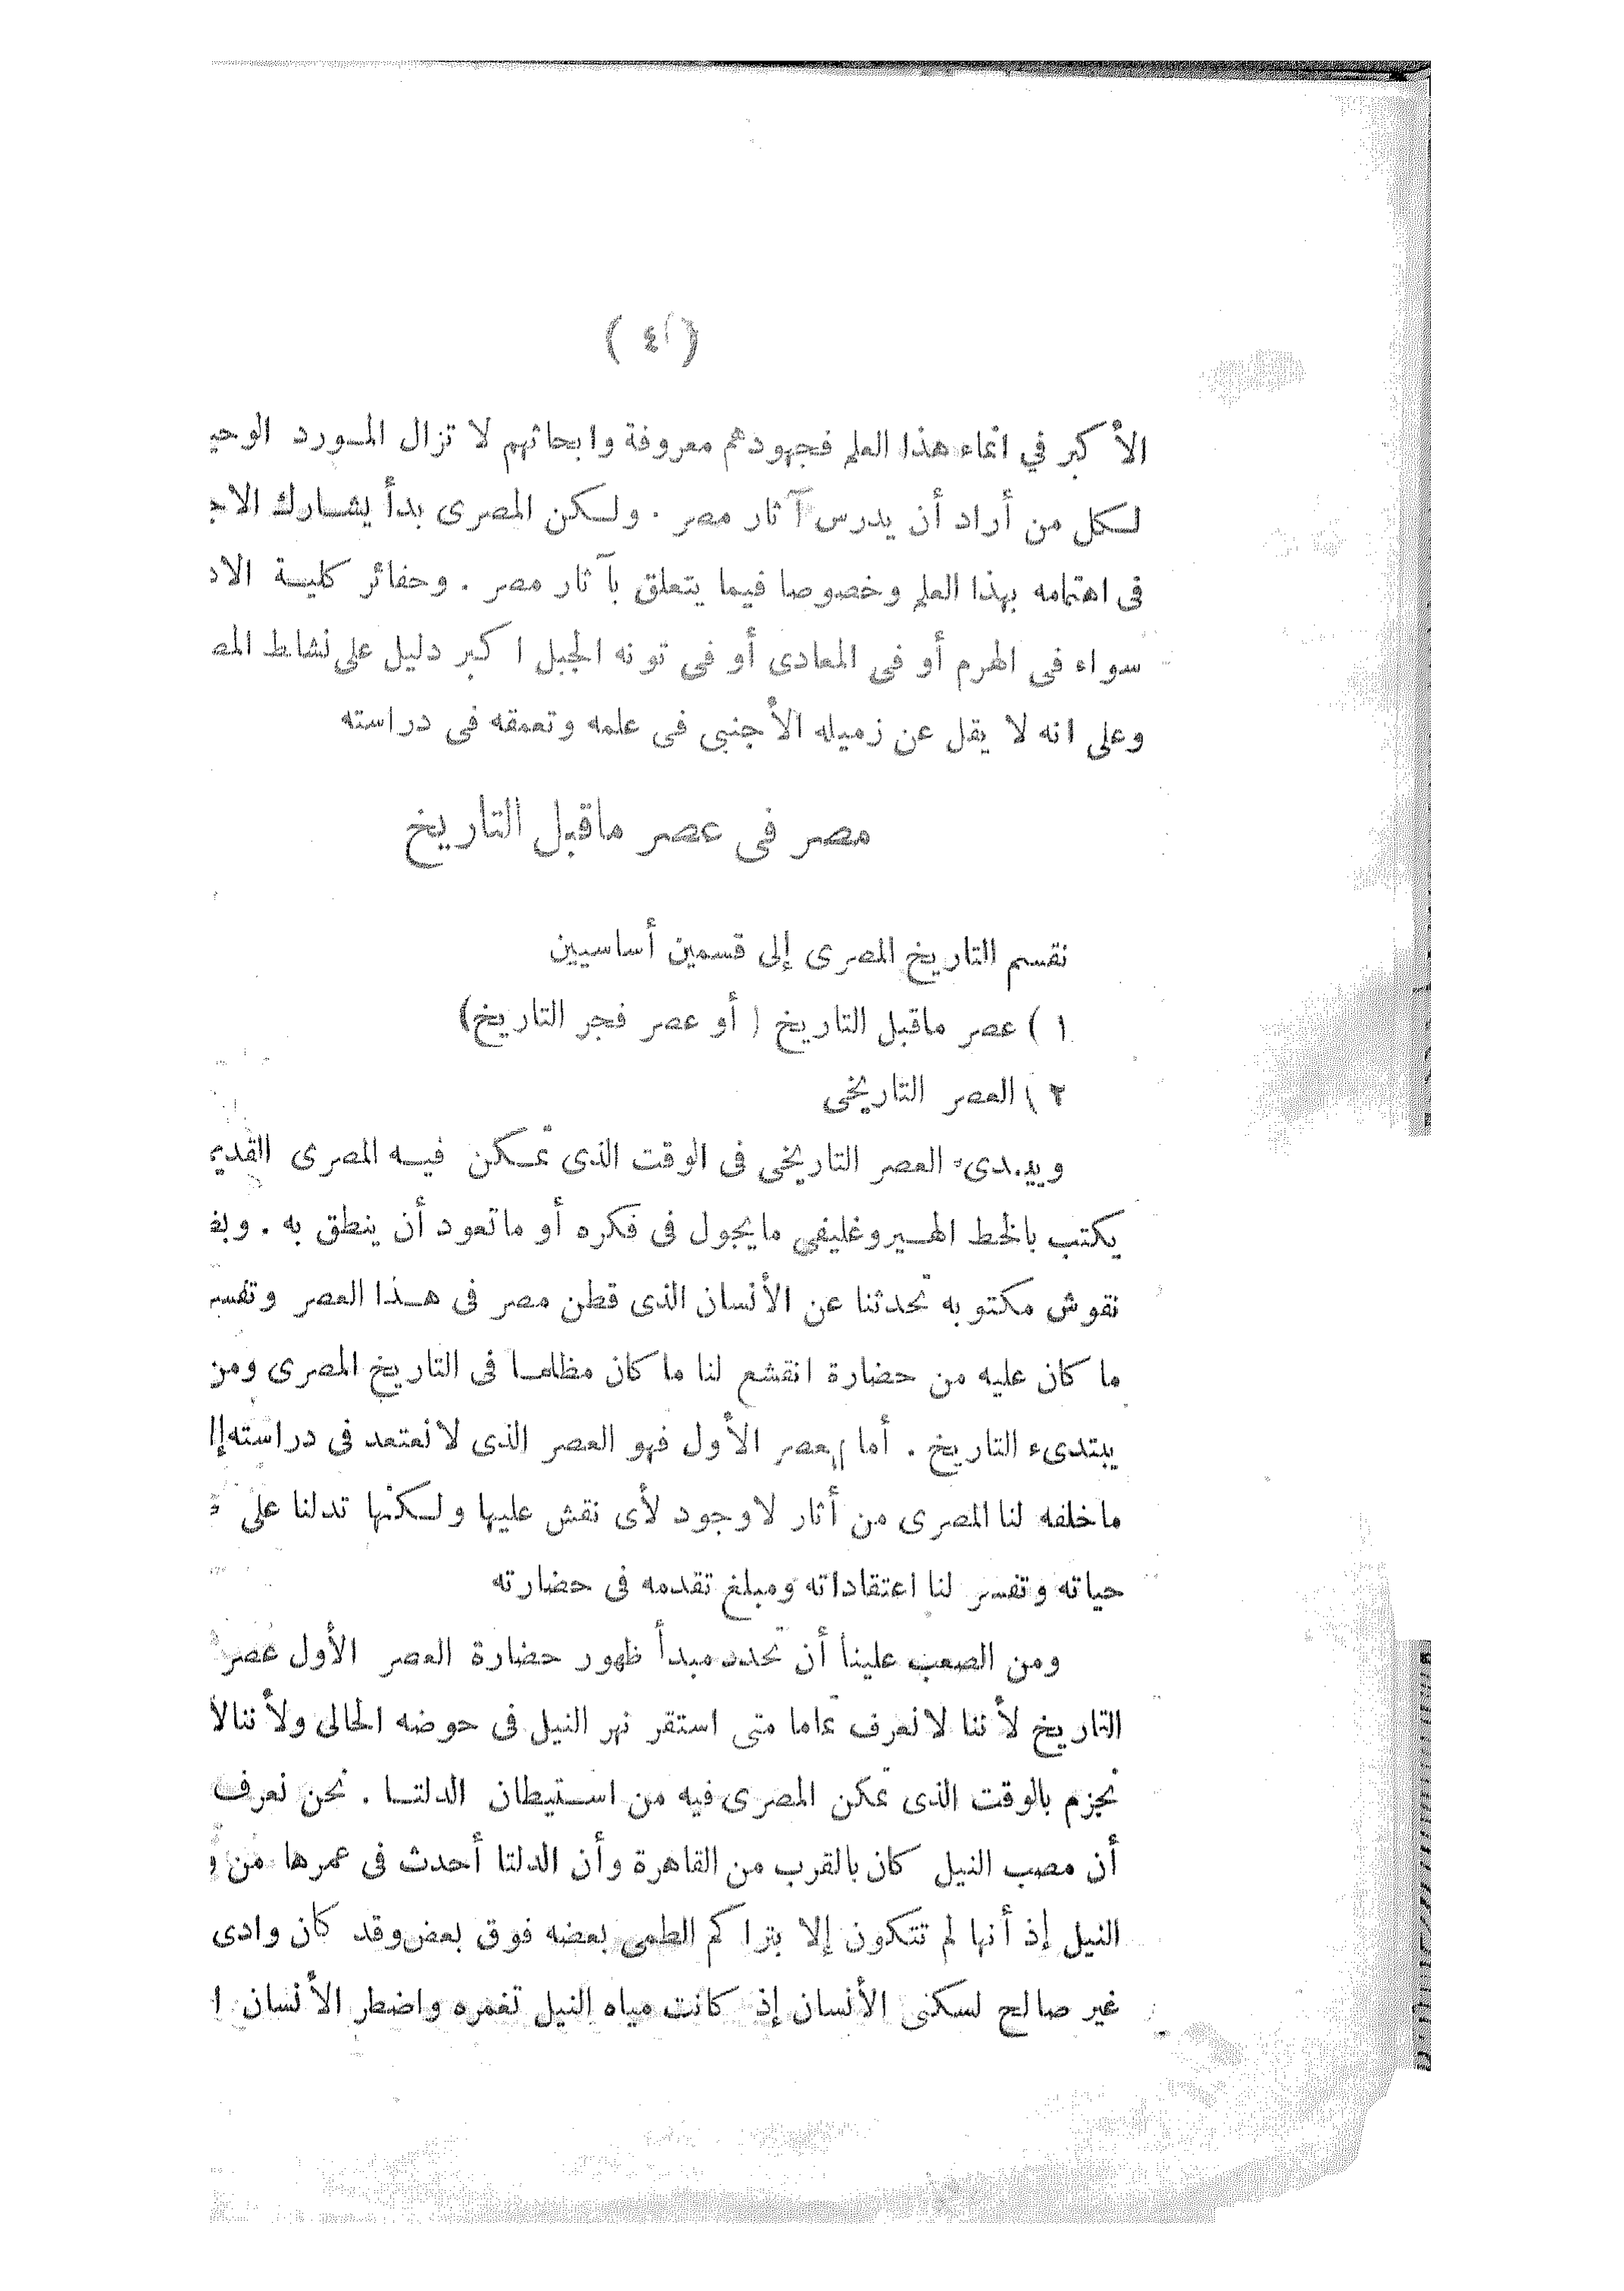 ( ٤ )
الأكبر في انماء هذا العلم فجهودهم معروفة وابحاثهم لا تزال المورد
لكل من أراد أن يدرس آثار مصر . ولكن المصرى بدأ يشارك
فى اهتمامه بهذا العلم وخصوصا فيما يتعلق بآثار مصر . وحفائر كلية
سواء فى الهرم أو فى المعادى أو فى تونه الجبل اكبر دليل على نشاط
وعلى انه لا يقل عن زميله الأجنبى فى علمه وتعمقه فى دراسته
مصر فى عصر ماقبل التاريخ
نقسم التاريخ المصرى إلى قسمين أساسيين
١ ) عصر ماقبل التاريخ ( أو عصر فجر التاريخ)
٢ ) العصر التاريخى
ويبتدىء العصر التاريخى فى الوقت الذى تمكن فيه المصرى
يكتب بالخط الهيروغليفى مايجول فى فكره أو ماتعود أن ينطق به .
نقوش مكتوبه تحدثنا عن الأنسان الذى قطن مصر فى هذا العصر
ما كان عليه من حضارة انقشع لنا ما كان مظلما فى التاريخ المصرى ومن
يبتدىء التاريخ . أما العصر الأول فهو العصر الذى لانعتمد فى دراسته
ماخلفه لنا المصرى من أثار لاوجود لأى نقش عليها ولكنها تدلنا على
حياته وتفسر لنا اعتقاداته ومبلغ تقدمه فى حضارته
ومن الصعب علينا أن نحدد مبدأ ظهور حضارة العصر الأول عصر
التاريخ لأننا لانعرف تماما متى استقر نهر النيل فى حوضه الحالى ولأننا
نجزم بالوقت الذى تمكن المصرى فيه من استيطان الدلتا . نحن نعرف
أن مصب النيل كان بالقرب من القاهرة وأن الدلتا أحدث فى عمرها من
النيل إذ أنها لم تتكون إلا بتراكم الطمى بعضه فوق بعض وقد كان وادى
غير صالح لسكنى الأنسان إذ كانت مياه النيل تغمره واضطر الأنسان